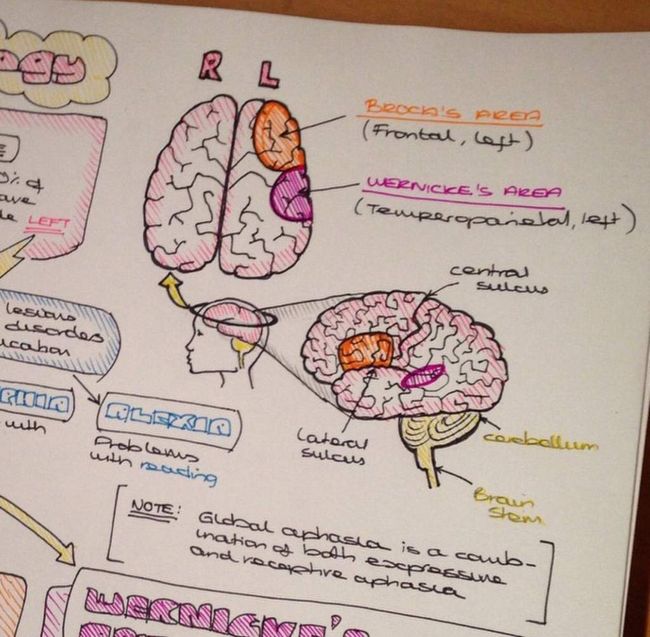 ogy
R L
BROCA'S AREA
(Frontal, left)
WERNICKE'S AREA
(Temperoparietal, left)
% of
LEFT
central
sulcus
lesions
disorders
with
ALEXIA
Problems
with reading
lateral
sulcus
cerebellum
Brain
stem
NOTE: Global aphasia is a comb-
ination of both expressive
and receptive aphasia
WERNICKE'S